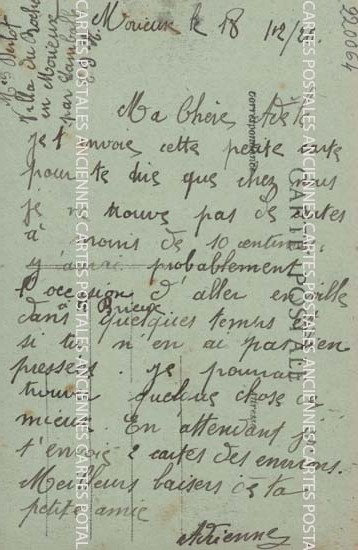 Morieux le 18
Ma Chère Adèle
je t'envoie cette petite carte
pour te dire que chez nous
je ne trouve pas de cartes
à moins de 10 centimes
j'aurai probablement
l'occasion d'aller en ville
Brieux
dans quelques temps
si tu n'en ai pas
pressers. je pourrais
trouver quelque chose de
mieux. En attendant je
t'envoie 2 cartes des environs.
Meilleurs baisers de ta
petite amie
Adrienne
Villa du Rocher
en Morieux
par Lamballe
920064
CARTE POSTALE
Correspondance
CARTES POSTALES ANCIENNES CARTES POSTALES ANCIENNES CARTES POSTAL